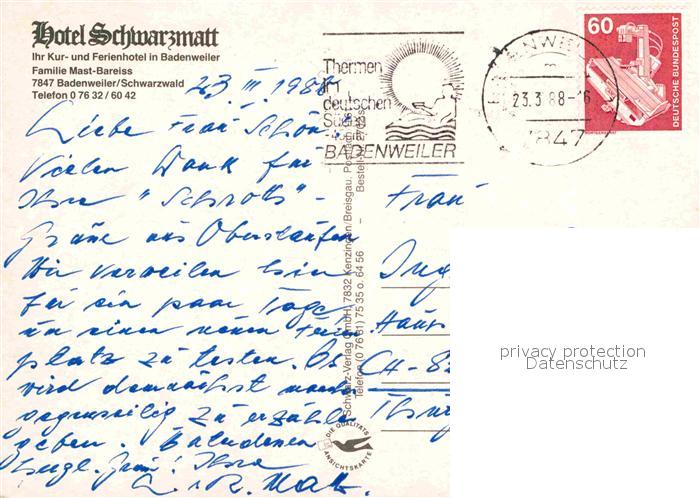 Hotel Schwarzmatt
Ihr Kur- und Ferienhotel in Badenweiler
Familie Mast-Bareiss
7847 Badenweiler/Schwarzwald
Telefon 0 76 32 / 60 42
23. III. 1988
Liebe Frau Schön
Vielen Dank für
Ihre "Schrott" -
Grüsse aus Oberstaufen
Wir verweilen hier
für ein paar Tage,
um einen neuen Ferien
platz zu testen. Es
wird demnächst
gegenseitig zu erzählen
geben.
herzl. Ihre
Thermen
im
deutschen
Süden
BADENWEILER
BADENWEILER
23.3.88-16
7847
60
DEUTSCHE BUNDESPOST
Schwarz-Verlag GmbH, 7832 Kenzingen/Breisgau, Postfach
Telefon (0 76 61) 75 35 o. 64 56
Bestell-Nr.
DIE QUALITÄTS
ANSICHTSKARTE
Frau
Ing
Haus
CH-82
Thur
privacy protection
Datenschutz